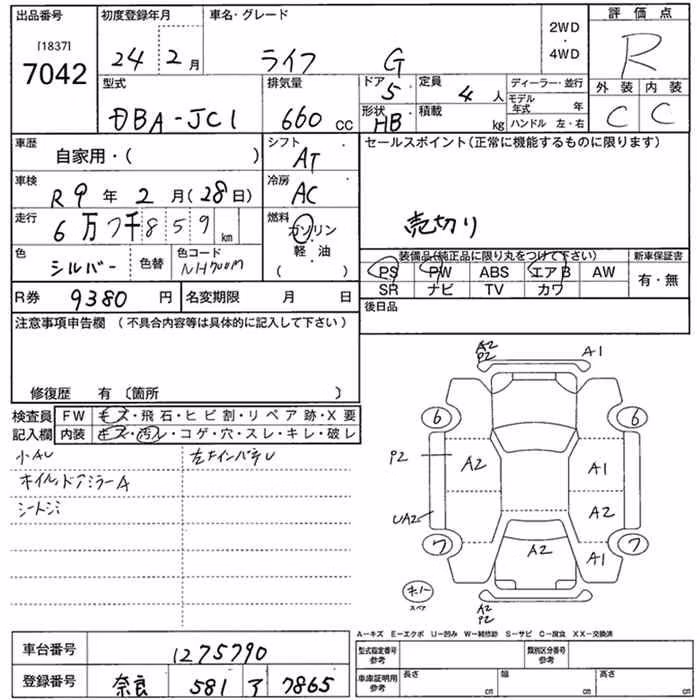 出品番号 初度登録年月 車名・グレード 評価点
[1837]
7042
24年 2月 ライフ G 2WD・4WD R
型式 排気量 ドア 5 定員 4人 ディーラー・並行 外装 内装
DBA-JC1 660cc 形状 HB 積載 kg モデル年式 年 C C
ハンドル 左・右
車歴 自家用・( ) シフト AT セールスポイント(正常に機能するものに限ります)
車検 R9年 2月(28日) 冷房 AC
走行 6万7千859km 燃料 ガソリン 売切り
軽油
( )
色 シルバー 色替 色コード NH700M 装備品(純正品に限り丸をつけて下さい) 新車保証書
PS PW ABS エアB AW 有・無
SR ナビ TV カワ
R券 9380円 名変期限 月 日 後日品
注意事項申告欄 (不具合内容等は具体的に記入して下さい)
修復歴 有 〔箇所 〕
検査員 FW キズ・飛石・ヒビ割・リペア跡・X要
記入欄 内装 キズ・汚レ・コゲ・穴・スレ・キレ・破レ
小AU
ホイル,ドアミラーA
A2
P2
A1
6
6
P2
A2
A1
UA2
A2
7
A2
A1
7
スペア
A2
P2
A-キズ E-エクボ U-凹み W-補修跡 S-サビ C-腐食 XX-交換済
車台番号 1275790 型式指定番号 参考 類別区分番号 参考
登録番号 奈良 581 7865 車庫証明用 参考 長さ cm 幅 cm 高さ cm